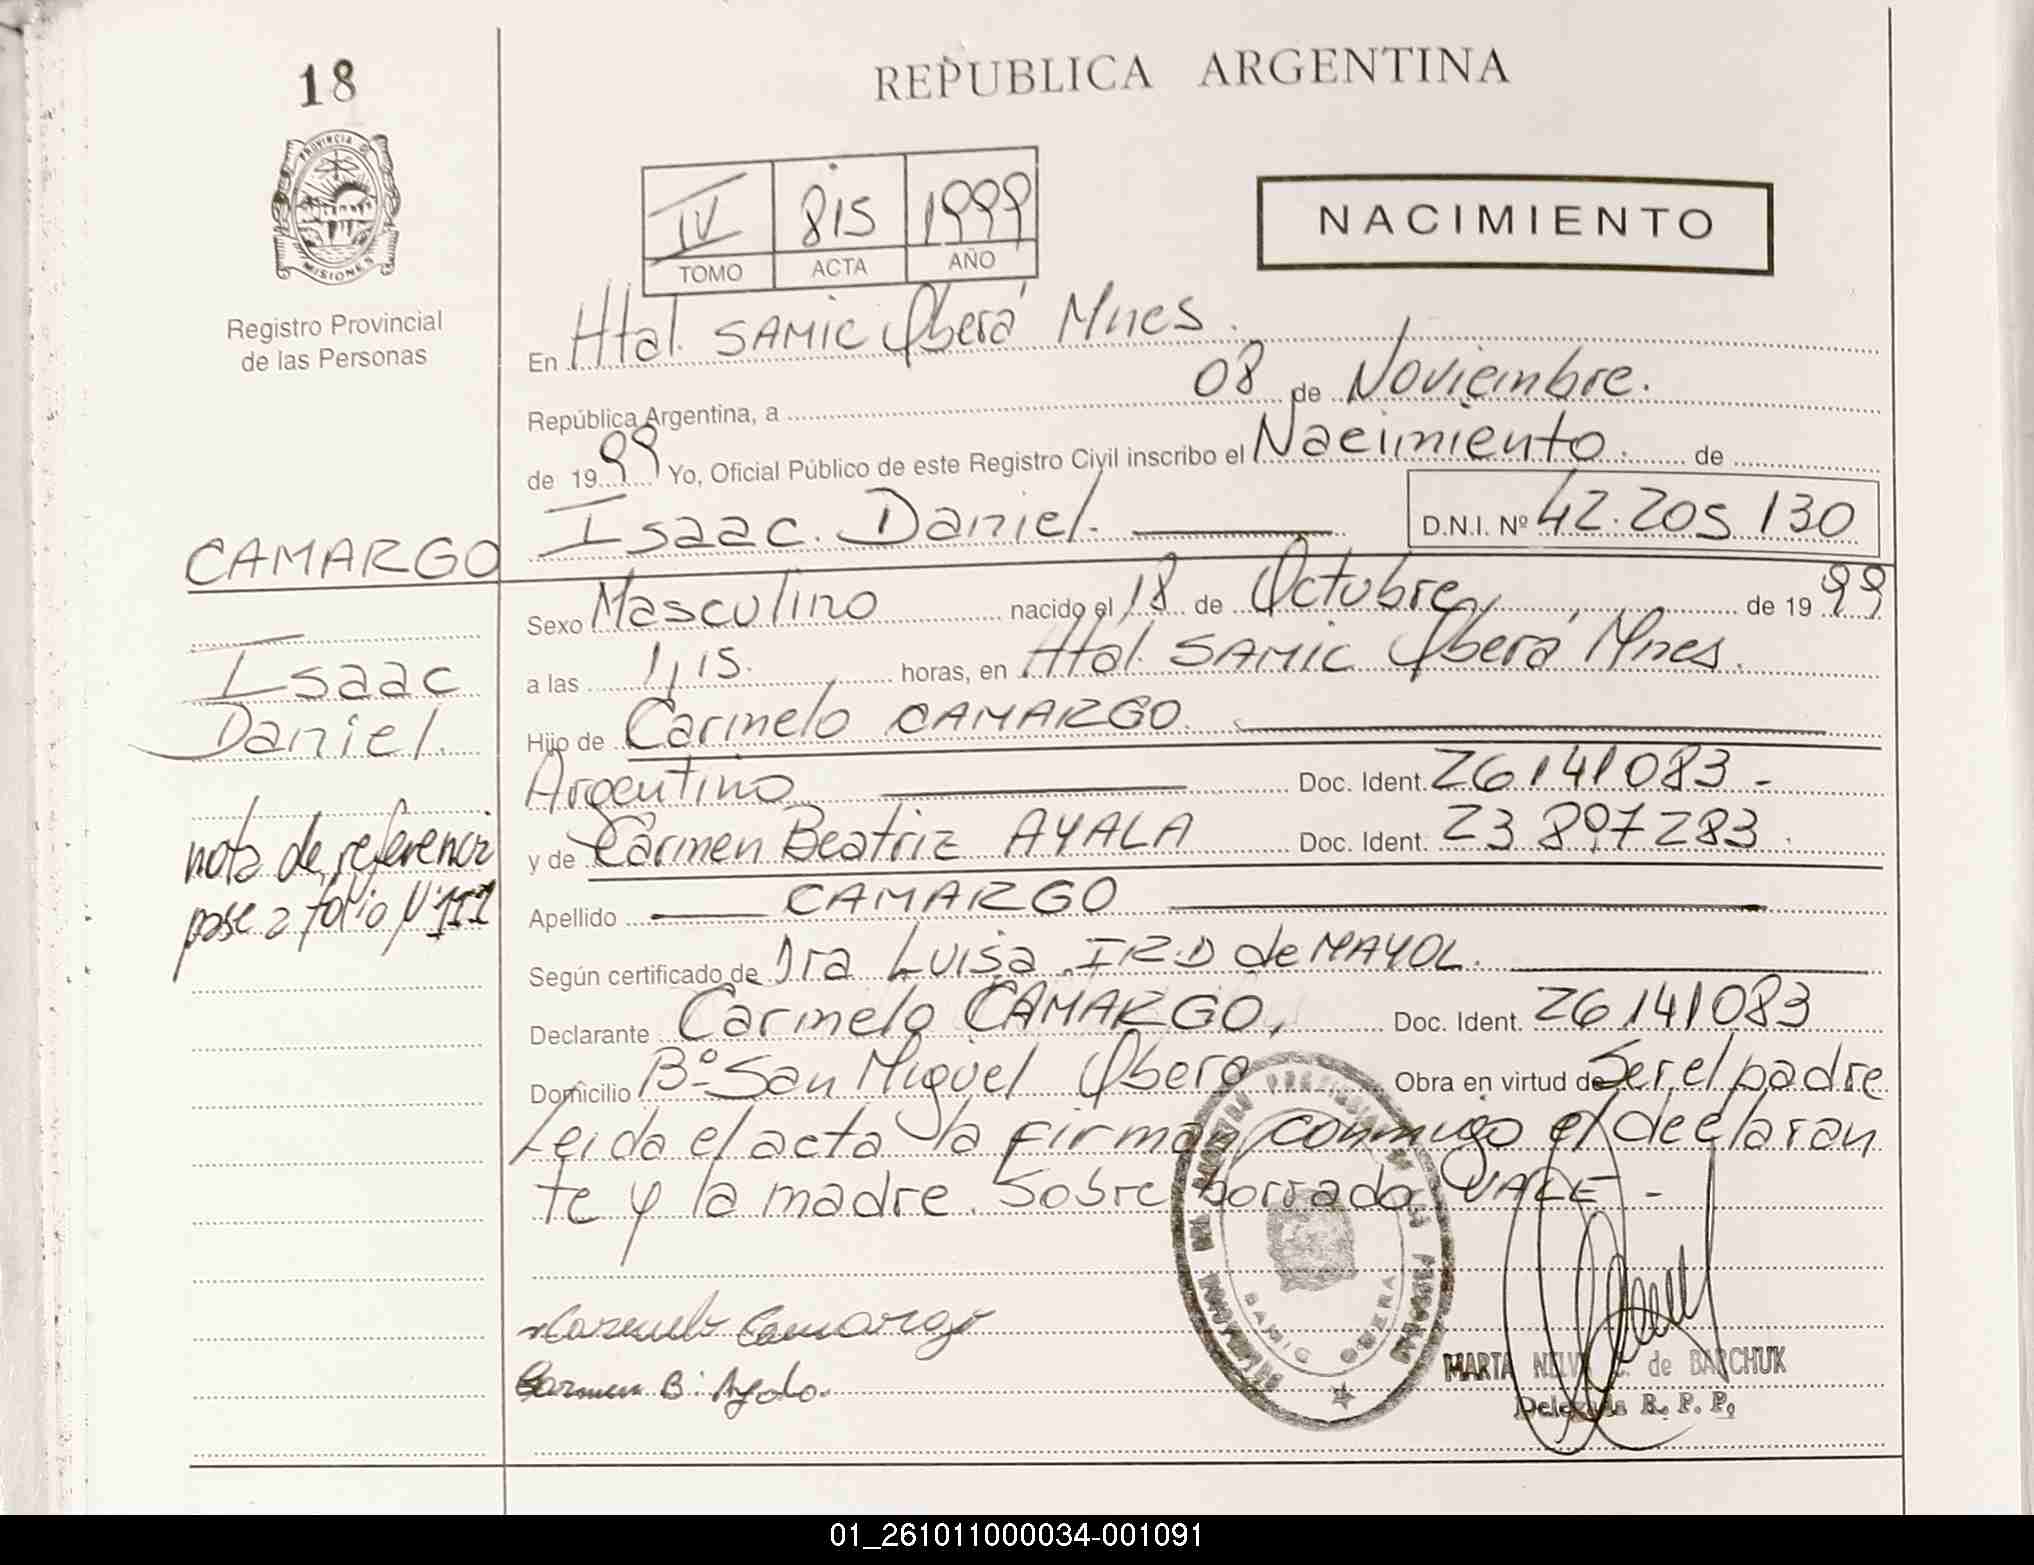 18
REPUBLICA ARGENTINA
PROVINCIA DE
MISIONES
Registro Provincial
de las Personas
IV 815 1999
TOMO ACTA AÑO
NACIMIENTO
En Htal. SAMIC Oberá Mnes.
República Argentina, a 08 de Noviembre.
de 1999 Yo, Oficial Público de este Registro Civil inscribo el Nacimiento de
Isaac Daniel.
D.N.I. Nº 42.205.130
CAMARGO
Isaac
Daniel.
nota de referencia
pase a folio Nº
Sexo Masculino nacido el 18 de Octubre de 1999
a las 1,15. horas, en Htal. SAMIC Oberá Mnes.
Hijo de Carmelo CAMARGO.
Argentino Doc. Ident. 26141083 -
y de Carmen Beatriz AYALA Doc. Ident. 23.897283.
Apellido CAMARGO
Según certificado de Dra Luisa I.R.D de MAYOL.
Declarante Carmelo CAMARGO, Doc. Ident. 26141083
Domicilio Bº San Miguel Oberá Obra en virtud de Ser el padre
Leida el acta la firman conmigo el declaran
te y la madre. Sobre borrado VALE -
Carmelo Camargo
Carmen B. Ayala.
SAMIC OBERA
MARTA de BARCHUK
Delegada R. P. P.
01_261011000034-001091